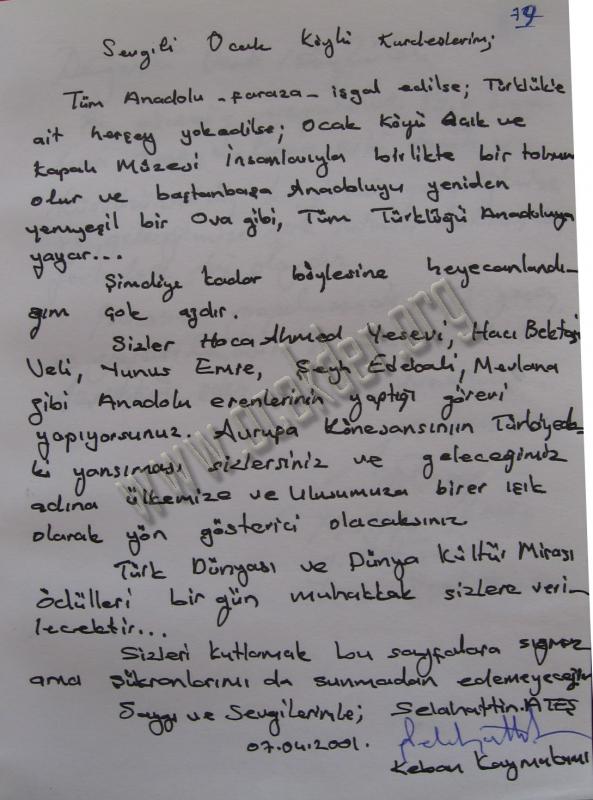 79
Sevgili Ocak Köylü Kardeşlerim;
Tüm Anadolu -faraza- işgal edilse; Türklük'e
ait herşey yokedilse; Ocak Köyü Açık ve
Kapalı Müzesi İnsanlarıyla birlikte bir tohum
olur ve baştanbaşa Anadoluyu yeniden
yemyeşil bir Ova gibi, Tüm Türklüğü Anadoluya
yayar...
Şimdiye kadar böylesine heyecanlandı-
ğım çok azdır.
Sizler Hoca Ahmed Yesevi, Hacı Bektaşi
Veli, Yunus Emre, Şeyh Edebali, Mevlana
gibi Anadolu erenlerinin yaptığı görevi
yapıyorsunuz. Avrupa Rönesansının Türkiyede-
ki yansıması sizlersiniz ve geleceğimiz
adına ülkemize ve Ulusumuza birer ışık
olarak yön gösterici olacaksınız
Türk Dünyası ve Dünya Kültür Mirası
ödülleri bir gün muhakkak sizlere veri-
lecektir...
Sizleri kutlamak bu sayfalara sığmaz
ama şükranlarımı da sunmadan edemeyeceğim
Saygı ve Sevgilerimle; Selahattin ATEŞ
07.04.2001.
Keban Kaymakamı
www.ocakder.org